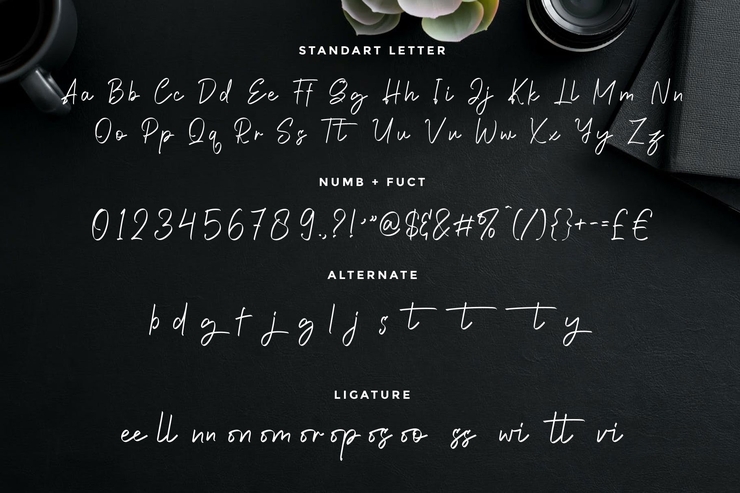 STANDART LETTER
Aa Bb Cc Dd Ee Ff Gg Hh Ii Jj Kk Ll Mm Nn
Oo Pp Qq Rr Ss Tt Uu Vv Ww Xx Yy Zz
NUMB + FUCT
0123456789.,?!'"@${&#%^(/){}+-=£€
ALTERNATE
b d g f j g l j s t t t y
LIGATURE
ee ll nn on om or op os oo ss wi tt vi